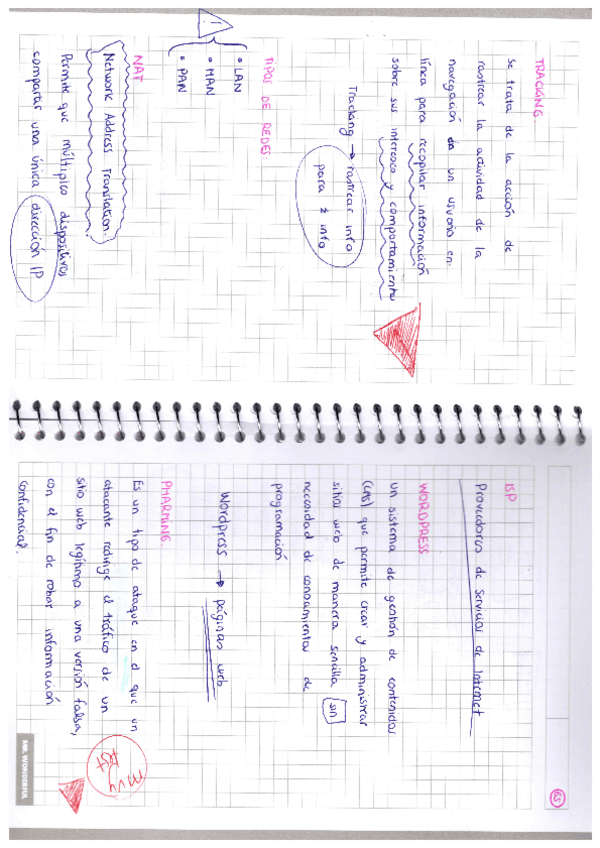 TRACKING
Se trata de la acción de
rastrear la actividad de la
navegación de un usuario en
línea para recopilar información
sobre sus intereses y comportamientos
Tracking → rastrear info
para + info
TIPOS DE REDES
• LAN
• MAN
• PAN
!
NAT
Network Address Translation.
Permite que múltiples dispositivos
compartir una única dirección IP
15
ISP
Proveedores de Servicios de Internet
WORDPRESS
un sistema de gestión de contenidos
(CMS) que permite crear y administrar
sitios web de manera sencilla sin
necesidad de conocimientos de
programación
Wordpress → páginas web
PHARMING
Es un tipo de ataque en el que un
atacante redirige el tráfico de un
sitio web legítimo a una versión falsa,
con el fin de robar información
confidencial.
muy
test
MR. WONDERFUL